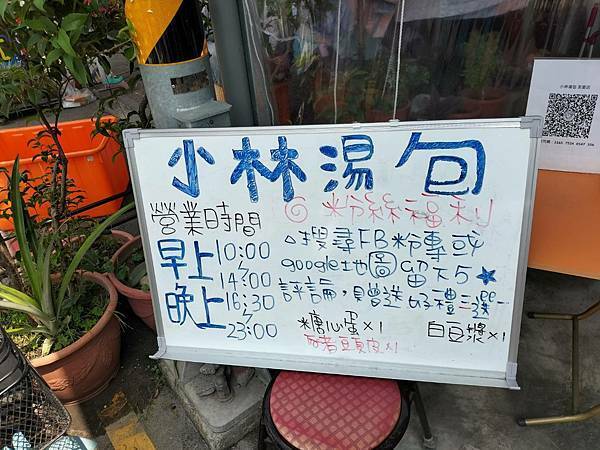 小林湯包
營業時間
早上 10:00
14:00
晚上 16:30
23:00
粉絲福利
搜尋FB粉專或
google地圖留下5★
評論,贈送好禮二選一
糖心蛋×1
白豆漿×1
豆皮×1
小林湯包